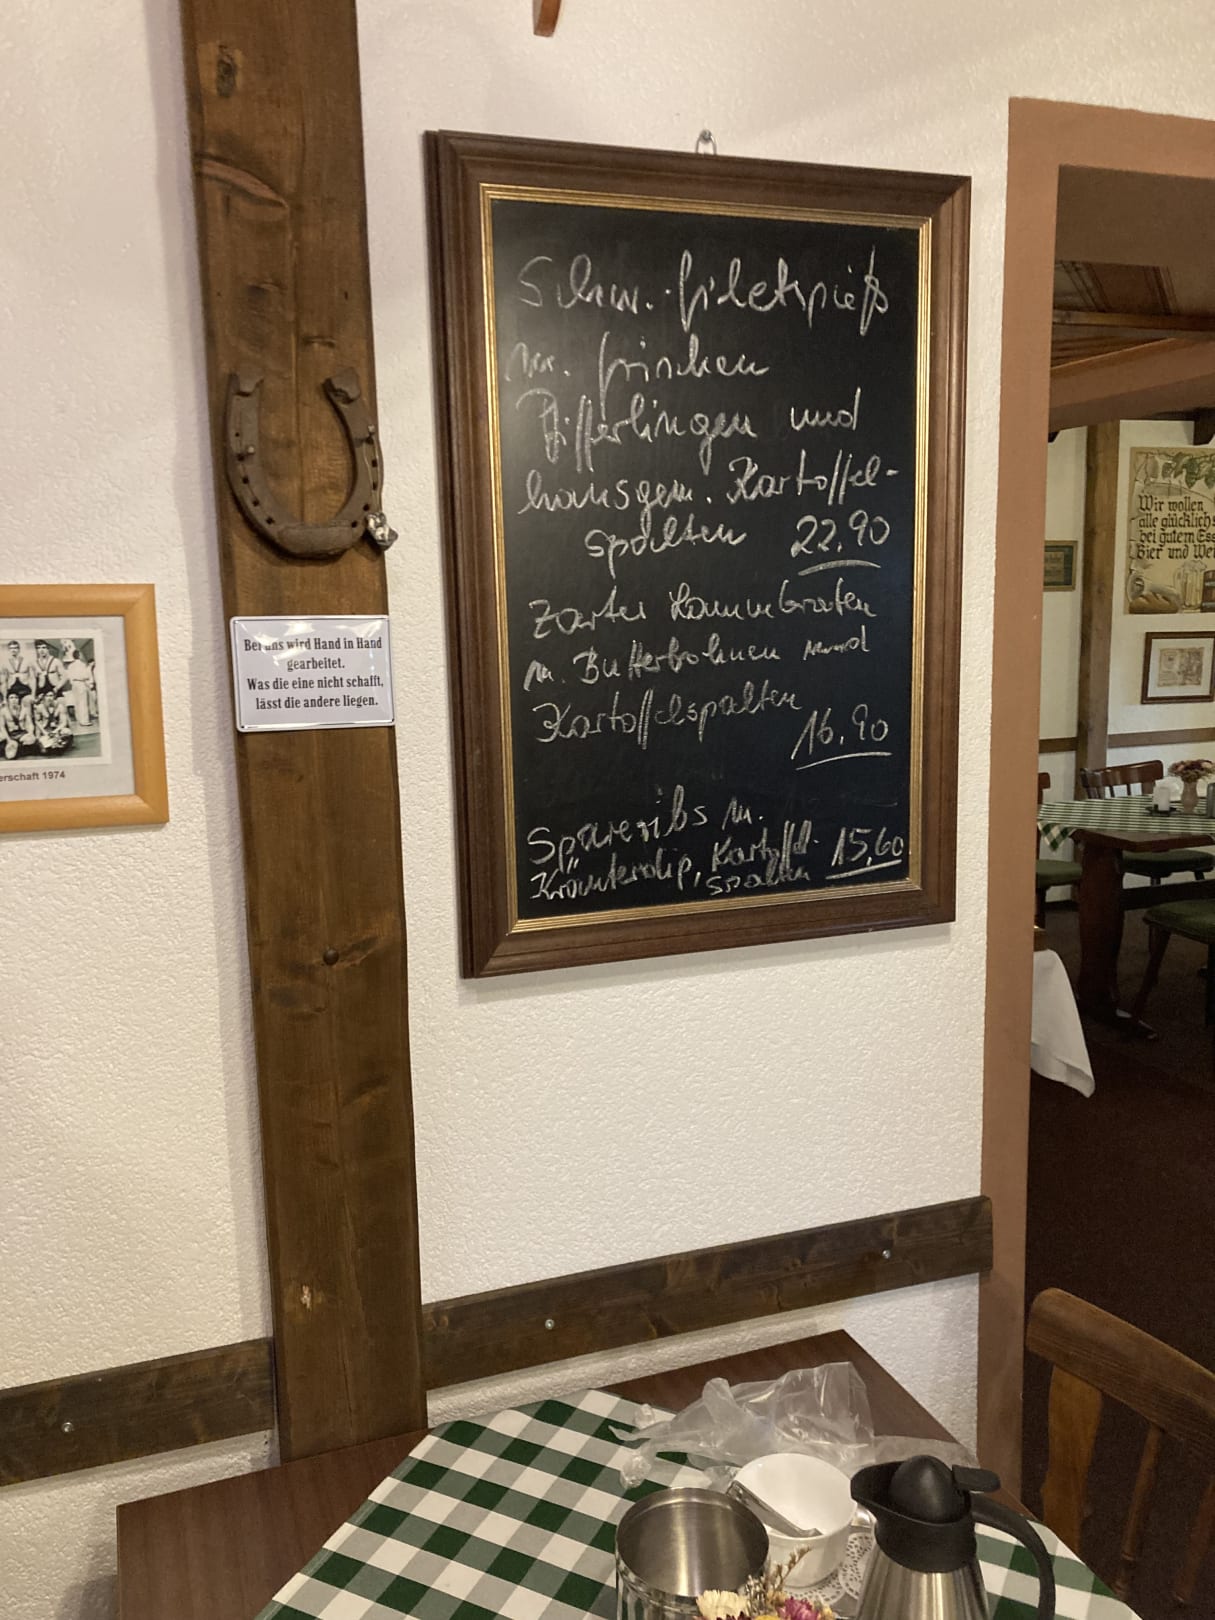 Schw.-filetspieß
m. frischen
Pfifferlingen und
hausgem. Kartoffel-
spalten 22,90
zarter Kammbraten
m. Butterbohnen und
Kartoffelspalten
16,90
Spareribs m.
Kräuterdip, Kartoffel-
spalten 15,60
Bei uns wird Hand in Hand
gearbeitet.
Was die eine nicht schafft,
lässt die andere liegen.
erschaft 1974
Wir wollen
alle glücklich
bei gutem Ess
Bier und Wei